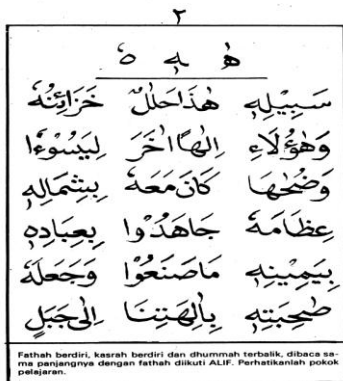 ٢
هٰ ـهٖ هٗ
سَبِيْلِهٖ هٰذَا حَلٰلٌ خَزَائِنُهٗ
وَهٰؤُلَاءِ اِلٰهًا اٰخَرَ لِيَسُوْءٗا
وَضُحٰهَا كَانَ مَعَهٗ بِشِمَالِهٖ
عِظَامَهٗ جَاهَدُوْا بِعِبَادِهٖ
بِيَمِيْنِهٖ مَاصَنَعُوْا وَجَعَلَهٗ
صٰحِبَتِهٖ بِاٰلِهَتِنَا اِلٰى جَبَلٍ
Fathah berdiri, kasrah berdiri dan dhummah terbalik, dibaca sa-
ma panjangnya dengan fathah diikuti ALIF. Perhatikanlah pokok
pelajaran.